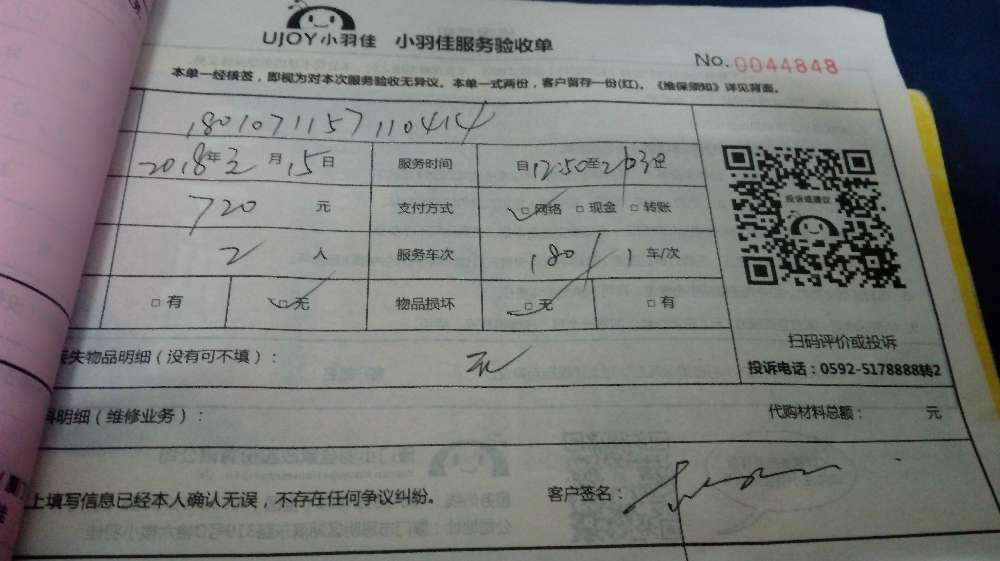 UJOY小羽佳 小羽佳服务验收单
No. 0044848
本单一经核签，即视为对本次服务验收无异议。本单一式两份，客户留存一份(红)。《维保须知》详见背面。
1801071157110414
2018年2月15日 服务时间 自12:50至
720 元 支付方式 □网络 □现金 □转账
2 人 服务车次 180/1车/次
□有 □无 物品损坏 □无 □有
投诉或建议
扫码评价或投诉
投诉电话：0592-5178888转2
失物品明细（没有可不填）： 无
明细（维修业务）： 代购材料总额： 元
上填写信息已经本人确认无误，不存在任何争议纠纷。 客户签名：